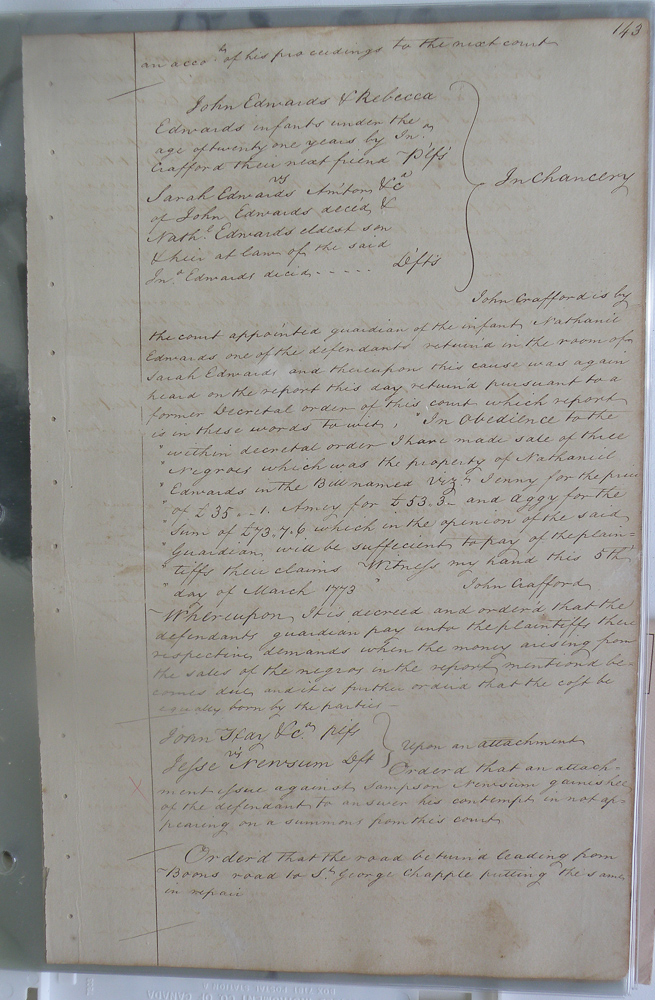 143
an acco.t of his proceedings to the next court
John Edwards & Rebecca
Edwards infants under the
age of twenty one years by Jn.o
Crafford their next friend Plfs
vs
Sarah Edwards Am.tom &c.a
of John Edwards decd &
Nath.l Edwards eldest son
& heir at law of the said
Jn.o Edwards decd. - - - - - Dfts
In Chancery
John Crafford is by
the court appointed guardian of the infant Nathaniel
Edwards one of the defendants return'd in the room of
Sarah Edwards and thereupon this cause was again
heard on the report this day return'd pursuant to a
former Decretal order of this court which report
is in these words to wit, "In Obedience to the
"within decretal order I have made sale of three
"Negroes which was the property of Nathaniel
"Edwards in the Bill named Viz.t Jenny for the price
"of £35.-.1. Amey for £53.3.- and Aggy for the
"sum of £73.7.6 which in the opinion of the said
"Guardian will be sufficient to pay of the plain=
"tiffs their claims Witness my hand this 5th
"day of March 1773" John Crafford
Whereupon It is decreed and orderd that the
defendants guardian pay unto the plaintiffs there
respective demands when the money arising from
the sales of the negros in the report mentiond be-
comes due, and it is further orderd that the cost be
equally born by the parties -
John Hay &c.a plfs
vs
Jesse Newsum Dft
Upon an attachment
Orderd that an attach-
ment issue against Sampson Newsum gaineshee
of the defendant to answer his contempt in not ap-
pearing on a summons from this court
Orderd that the road be turn'd leading from
Boons road to S.t George Chapple putting the same
in repair